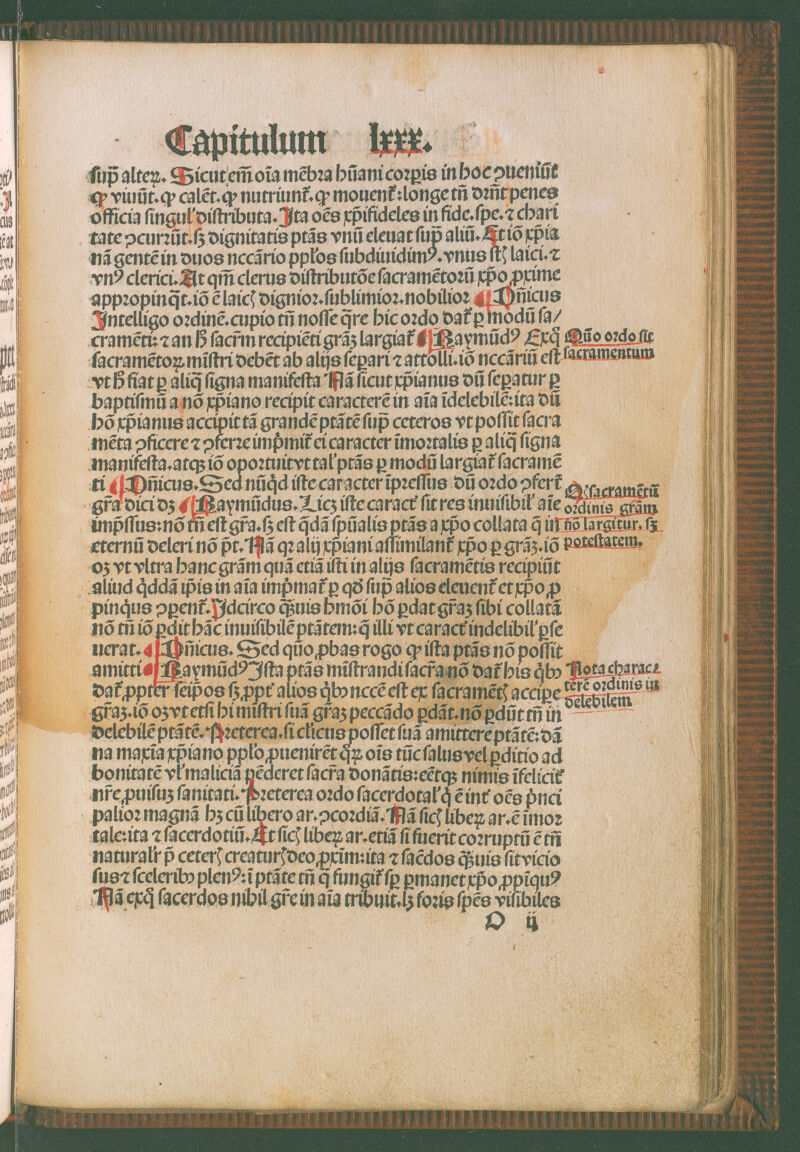 Capitulum lxxx.
sup̄ alteꝝ. Sicut em̄ oīa mēbra hūani corꝑis in hoc ↄueniūt
ꝙ viuūt. ꝙ calēt. ꝙ nutriunt̄. ꝙ mouent̄: longe tn̄ dr̄nt penes
officia singul' distributa. Ita oēs xp̄ifideles in fide. spe. ⁊ chari
tate ↄcurrūt. sꝫ dignitatis ptās vnū eleuat sup̄ aliū. Et iō xp̄ia
nā gentē in duos nccārio pp̄los subdiuidimꝰ. vnus st̄ꝫ laici. ⁊
vnꝰ clerici. At qm̄ clerus distributōe sacramētorū xp̄o ꝓxime
appropinq̄t. iō ē laicꝭ dignior. sublimior. nobilior ¶ Dn̄icus
Intelligo ordinē. cupio tn̄ nosse q̄re hic ordo dat̄ ꝑ modū sa/
cramēti: ⁊ an h̄ sacr̄m recipiēti grāꝫ largiat̄ ¶ Raymūdꝰ Exq̄
Quō ordo sit
sacramētoꝝ mīstri debēt ab alijs seꝑari ⁊ attolli. iō nccāriū est
sacramentum
vt h̄ fiat ꝑ aliq̄ signa manifesta Nā sicut xp̄ianus dū seꝑatur ꝑ
baptismū a nō xp̄iano recipit caracterē in aīa īdelebilē: ita dū
hō xp̄ianus accipit tā grandē ptātē sup̄ ceteros vt possit sacra
mēta ↄficere ⁊ ↄferre imp̄mit̄ ei caracter īmortalis ꝑ aliq̄ signa
manifesta. atqꝫ iō oportuit vt tal' ptās ꝑ modū largiat̄ sacramē
ti ¶ Dn̄icus. Sed nūq̄d iste caracter īpressus dū ordo ↄfert̄
gr̄a dici dꝫ ¶ Raymūdus. Licꝫ iste caract̄ sit res inuisibil' aīe
Qꝛ sacramētū
ordinis grām
imp̄ssus: nō tn̄ est gr̄a. sꝫ est q̄dā sp̄ualis ptās a xp̄o collata q̄ in
nō largitur. sꝫ
eternū deleri nō p̄t. Nā qꝛ alij xp̄iani assimilant̄ xp̄o ꝑ grāꝫ. iō
potestatem.
oꝫ vt vltra hanc grām quā etiā isti in alijs sacramētis recipiūt
aliud q̄ddā ip̄is in aīa imp̄mat̄ ꝑ qd̄ sup̄ alios eleuent̄ et xp̄o ꝓ
pinq̄us ↄꝑent̄. Idcirco q̄ꝫuis hmōi hō ꝑdat gr̄aꝫ sibi collatā
nō tn̄ iō ꝑdit hāc inuisibilē ptātem: q̄ illi vt caract̄ indelibil' ꝑse
uerat. ¶ Dn̄icus. Sed quō ꝓbas rogo ꝙ ista ptās nō possit
amitti ¶ Raymūdꝰ Ista ptās mīstrandi sacr̄a nō dat̄ his q̄bꝫ
Nota charac⸗
dat̄ ꝓpter seip̄os sꝫ ꝓpt̄ alios q̄bꝫ nccē est ex sacramētꝭ accipe
terē ordinis in
delebilem
gr̄aꝫ. iō oꝫ vt etsi hi mīstri suā gr̄aꝫ peccādo ꝑdāt. nō ꝑdūt tn̄ in
delebilē ptātē. Preterea. si cl'icus posset suā amittere ptātē: dā
na maxīa xp̄iano pp̄lo ꝓuenirēt q̄ꝝ oīs tūc salus vel ꝑditio ad
bonitatē vl' maliciā pēderet sacr̄a donātis: eētqꝫ nimis īfelicit̄
nr̄e ꝓuisuꝫ sanitati. Preterea ordo sacerdotal' q̄ ē int̄ oēs p̄nci
palior magnā hꝫ cū libero ar. ↄcordiā. Nā sicꝭ libeꝝ ar. ē īmor
tale: ita ⁊ sacerdotiū. Et sicꝭ libeꝝ ar. etiā si fuerit corruptū ē tn̄
naturalr̄ p̄ ceterꝭ creaturꝭ deo ꝓxim: ita ⁊ sac̄dos q̄ꝫuis sit vicio
sus ⁊ sceleribꝫ plenꝰ: ī ptāte tn̄ q̄ fungit̄ sꝑ ꝑmanet xp̄o ꝓpīquꝰ
Nā exq̄ sacerdos nihil gr̄e in aīa tribuit. lꝫ foris sp̄es visibiles
O ij